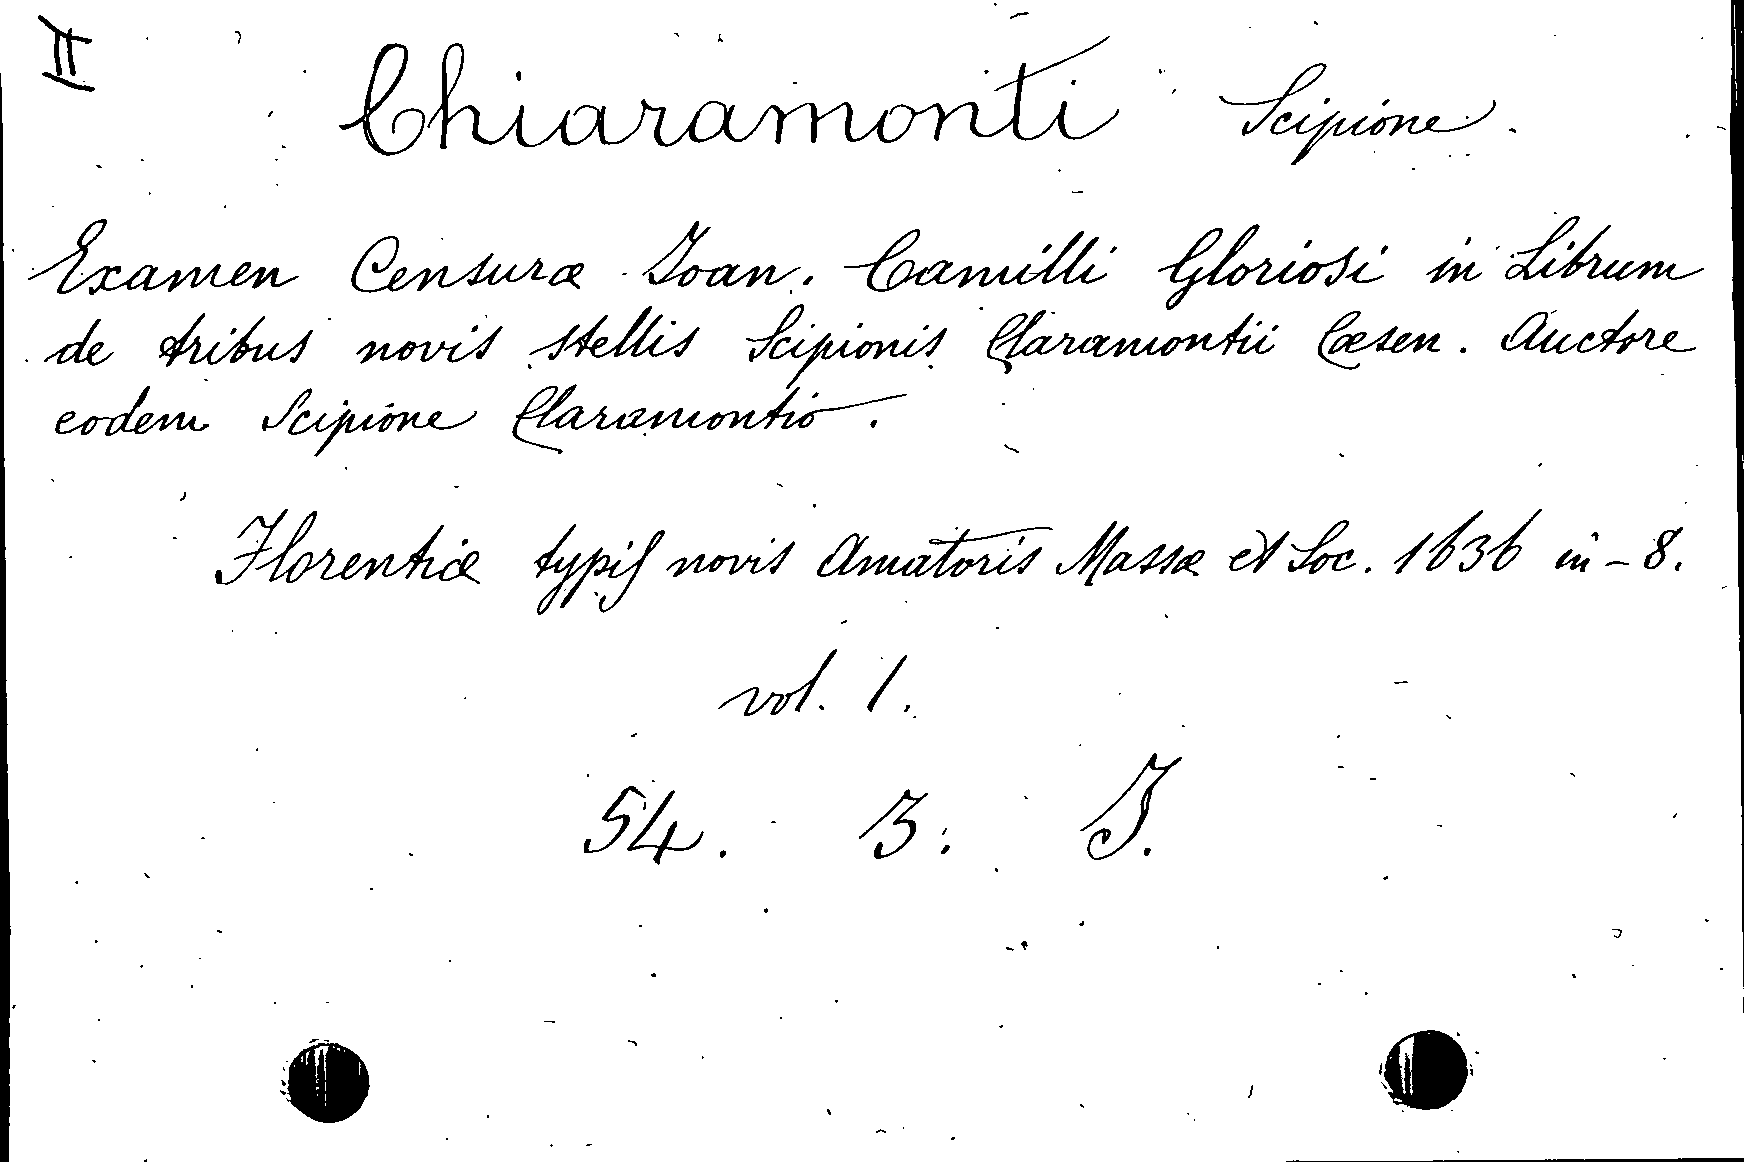 II
Chiaramonti Scipione.
Examen Censuræ Joan. Camilli Gloriosi in Librum
de tribus novis stellis Scipionis Claramontii Cæsen. Auctore
eodem Scipione Claramontio.
Florentiæ typis novis Amatoris Massæ et Soc. 1636 in-8.
vol. 1.
54. 3. J.